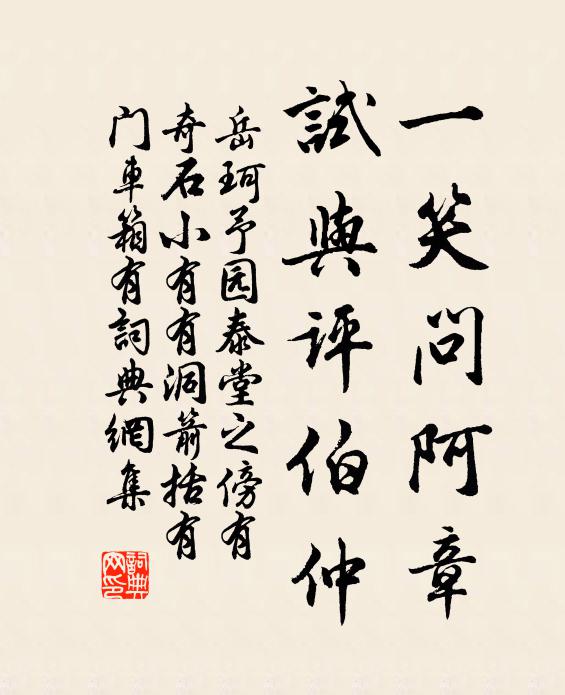 一笑問阿章
試與評伯仲
岳珂予园泰堂之傍有
奇石小有有洞箭括有
门車箱有詞典網集
詞典网印